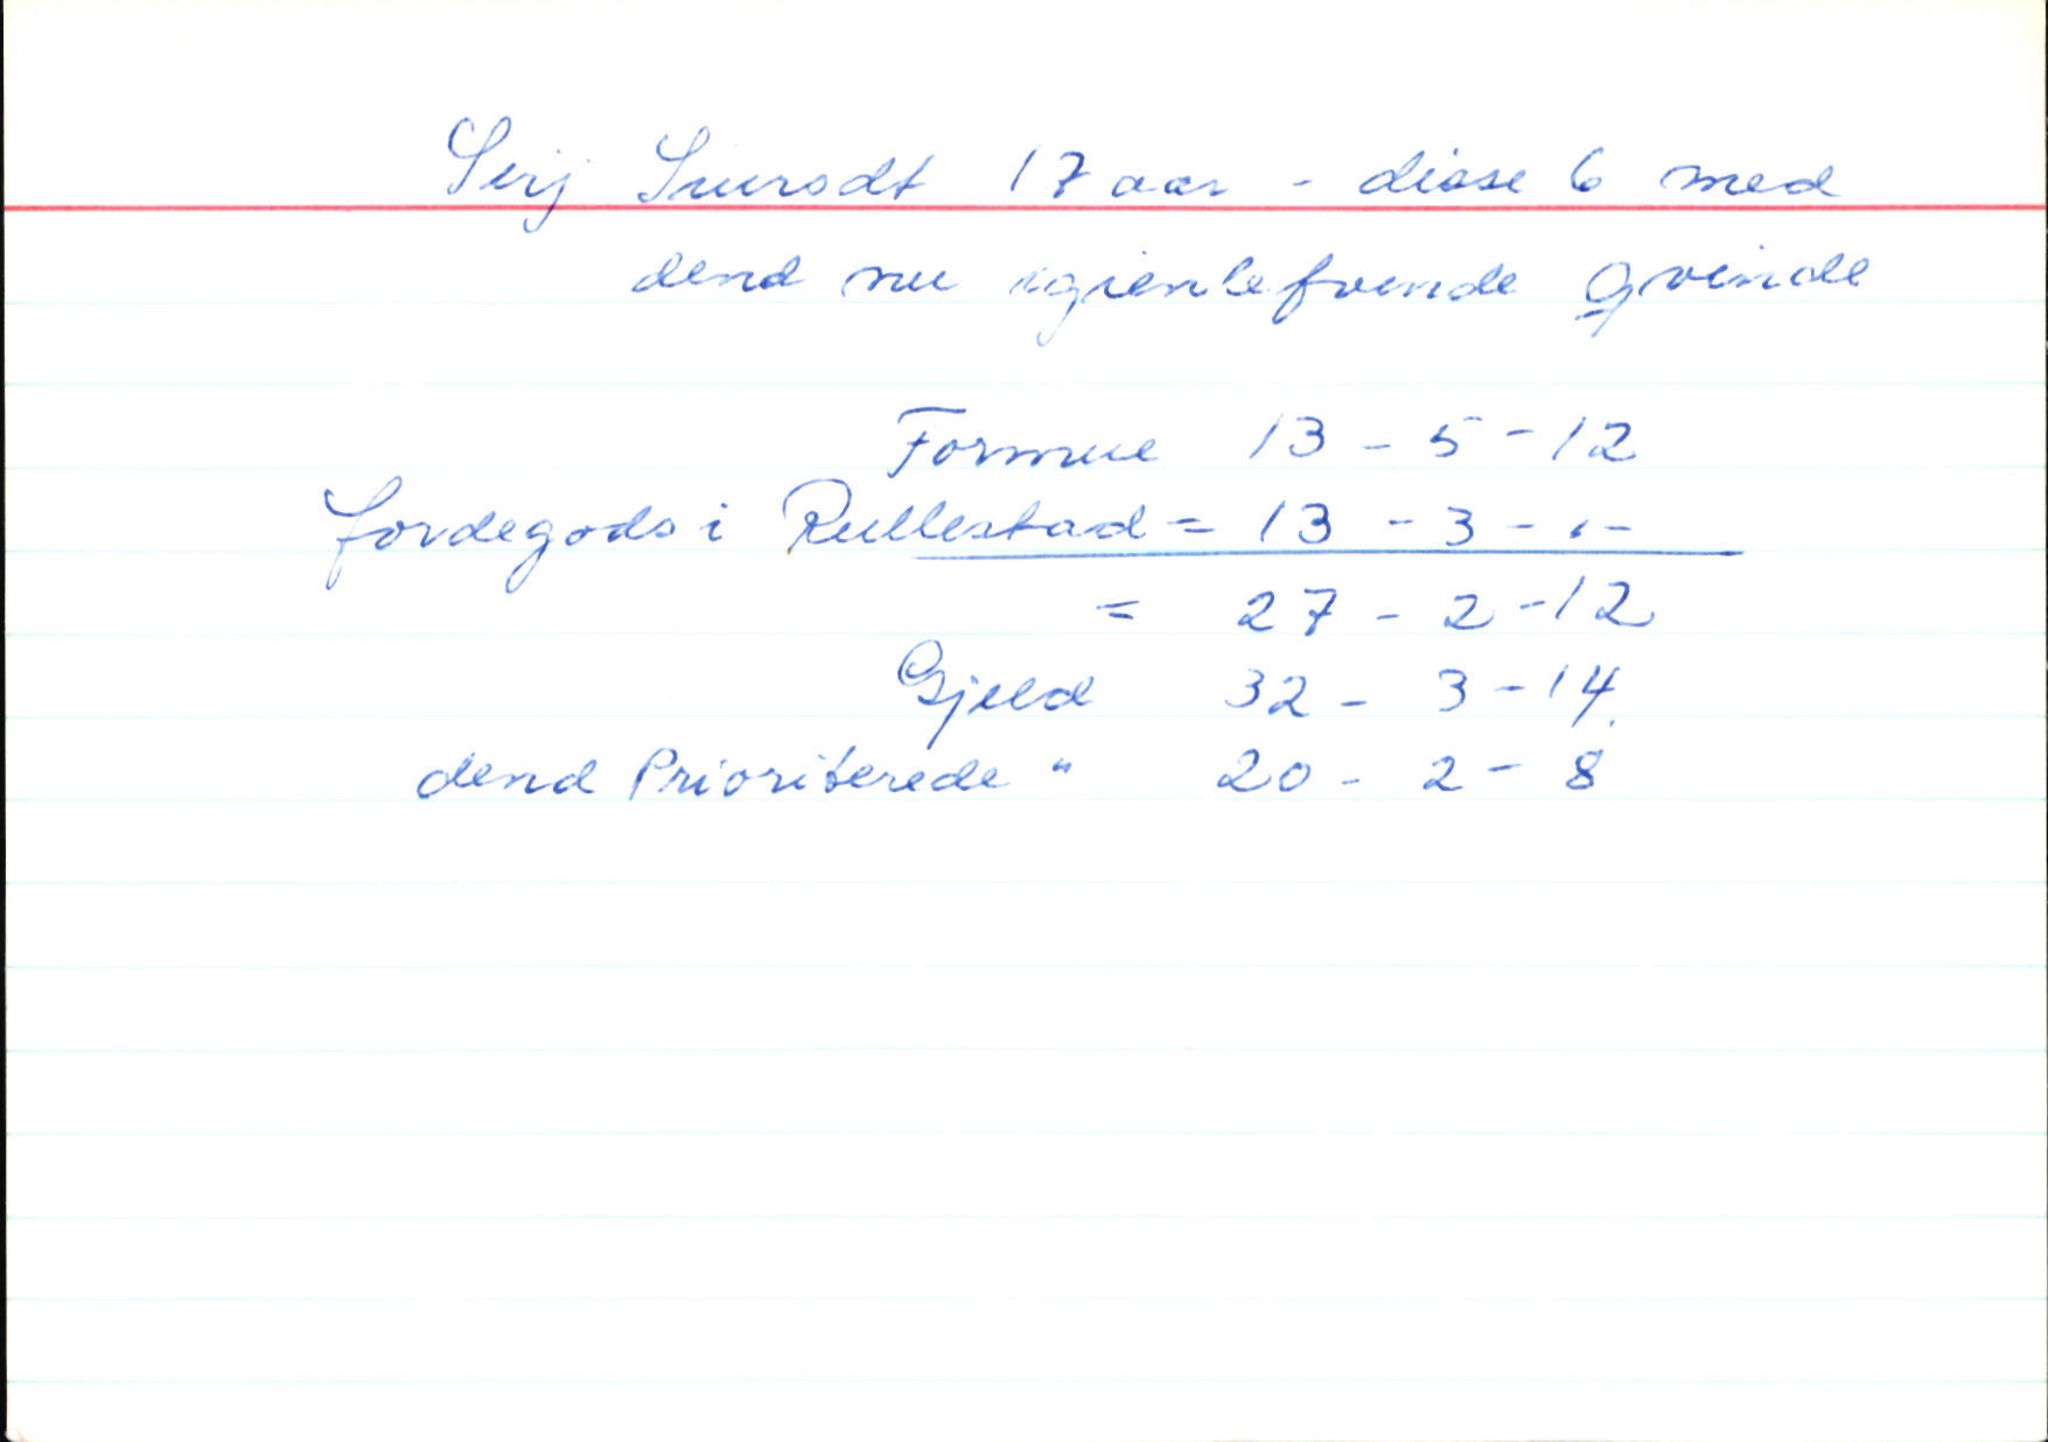 Sirj Siursdt 17 aar - disse 6 med
dend nu igienlefvende Qvinde
Formue 13 - 5 - 12
Jordegods i Rullestad = 13 - 3 - " -
= 27 - 2 - 12
Gjeld 32 - 3 - 14.
dend Prioriterede " 20 - 2 - 8